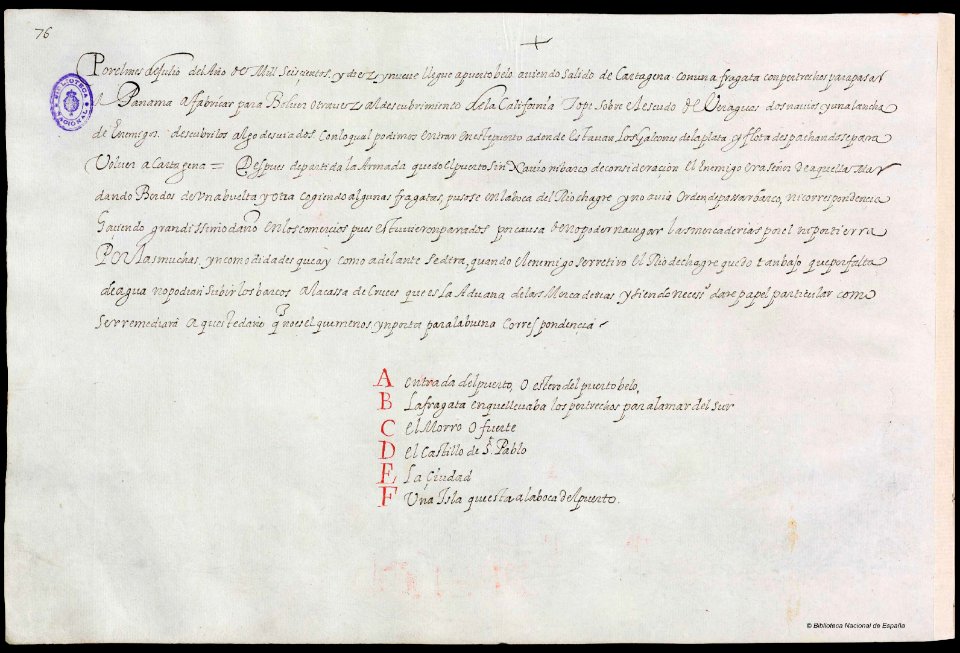 76
Por el mes de Julio del Año de Mill Seiscientos, y diez y nueve llegue apuertobelo aviendo salido de Cartagena con una fragata conpertrechos parapasar
a Panama a fabricar para Bolver otravez al descubrimiento de la California Tope sobre el escudo de Veraguas dos navios y una lancha
de Enemigos. descubrilos algo desviados con lo qual podimos entrar en este puerto adonde Estavan Los Galeones de la plata, y flota despachandose para
Volver a Cartagena = Despues de partida la Armada quedo el puerto sin Navio ni barco de consideracion El Enemigo era señor de aquella Mar
dando Bordos de una buelta y otra Cogiendo algunas fragatas, pusose en la boca del Rio chagre y no avia Orden de passar barco, ni correspondencia
haviendo grandissimo daño en los comercios pues estuvieron parados por causa de no poder navegar las mercaderias por el ni por tierra
Por las muchas yncomodidades que ay como adelante se dira, quando el enemigo se retiro el Rio de chagre quedo tan bajo que por falta
de agua no podian subir los barcos a la cassa de Cruces que es La Aduana de las Mercaderias y siendo necess.º dare papel particular como
Se remediara aqueste daño q noes el que menos ynporta para la buena Correspondencia
A entrada del puerto, O estero del puertobelo,
B La fragata en que llevaba los pertrechos para la mar del Sur
C el Morro O fuerte
D el Castillo de S. Pablo
E La Çiudad
F Una Isla que esta a la boca del puerto.
BIBLIOTECA NACIONAL
© Biblioteca Nacional de España